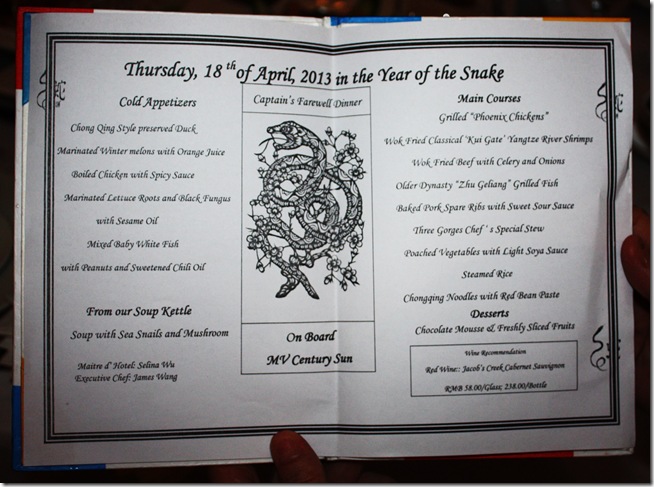 Thursday, 18th of April, 2013 in the Year of the Snake
Cold Appetizers
Chong Qing Style preserved Duck
Marinated Winter melons with Orange Juice
Boiled Chicken with Spicy Sauce
Marinated Lettuce Roots and Black Fungus
with Sesame Oil
Mixed Baby White Fish
with Peanuts and Sweetened Chili Oil
From our Soup Kettle
Soup with Sea Snails and Mushroom
Maitre d' Hotel: Selina Wu
Executive Chef: James Wang
Captain's Farewell Dinner
On Board
MV Century Sun
Main Courses
Grilled "Phoenix Chickens"
Wok Fried Classical 'Kui Gate' Yangtze River Shrimps
Wok Fried Beef with Celery and Onions
Older Dynasty "Zhu Geliang" Grilled Fish
Baked Pork Spare Ribs with Sweet Sour Sauce
Three Gorges Chef's Special Stew
Poached Vegetables with Light Soya Sauce
Steamed Rice
Chongqing Noodles with Red Bean Paste
Desserts
Chocolate Mousse & Freshly Sliced Fruits
Wine Recommendation
Red Wine:: Jacob's Creek Cabernet Sauvignon
RMB 58.00/Glass; 238.00/Bottle